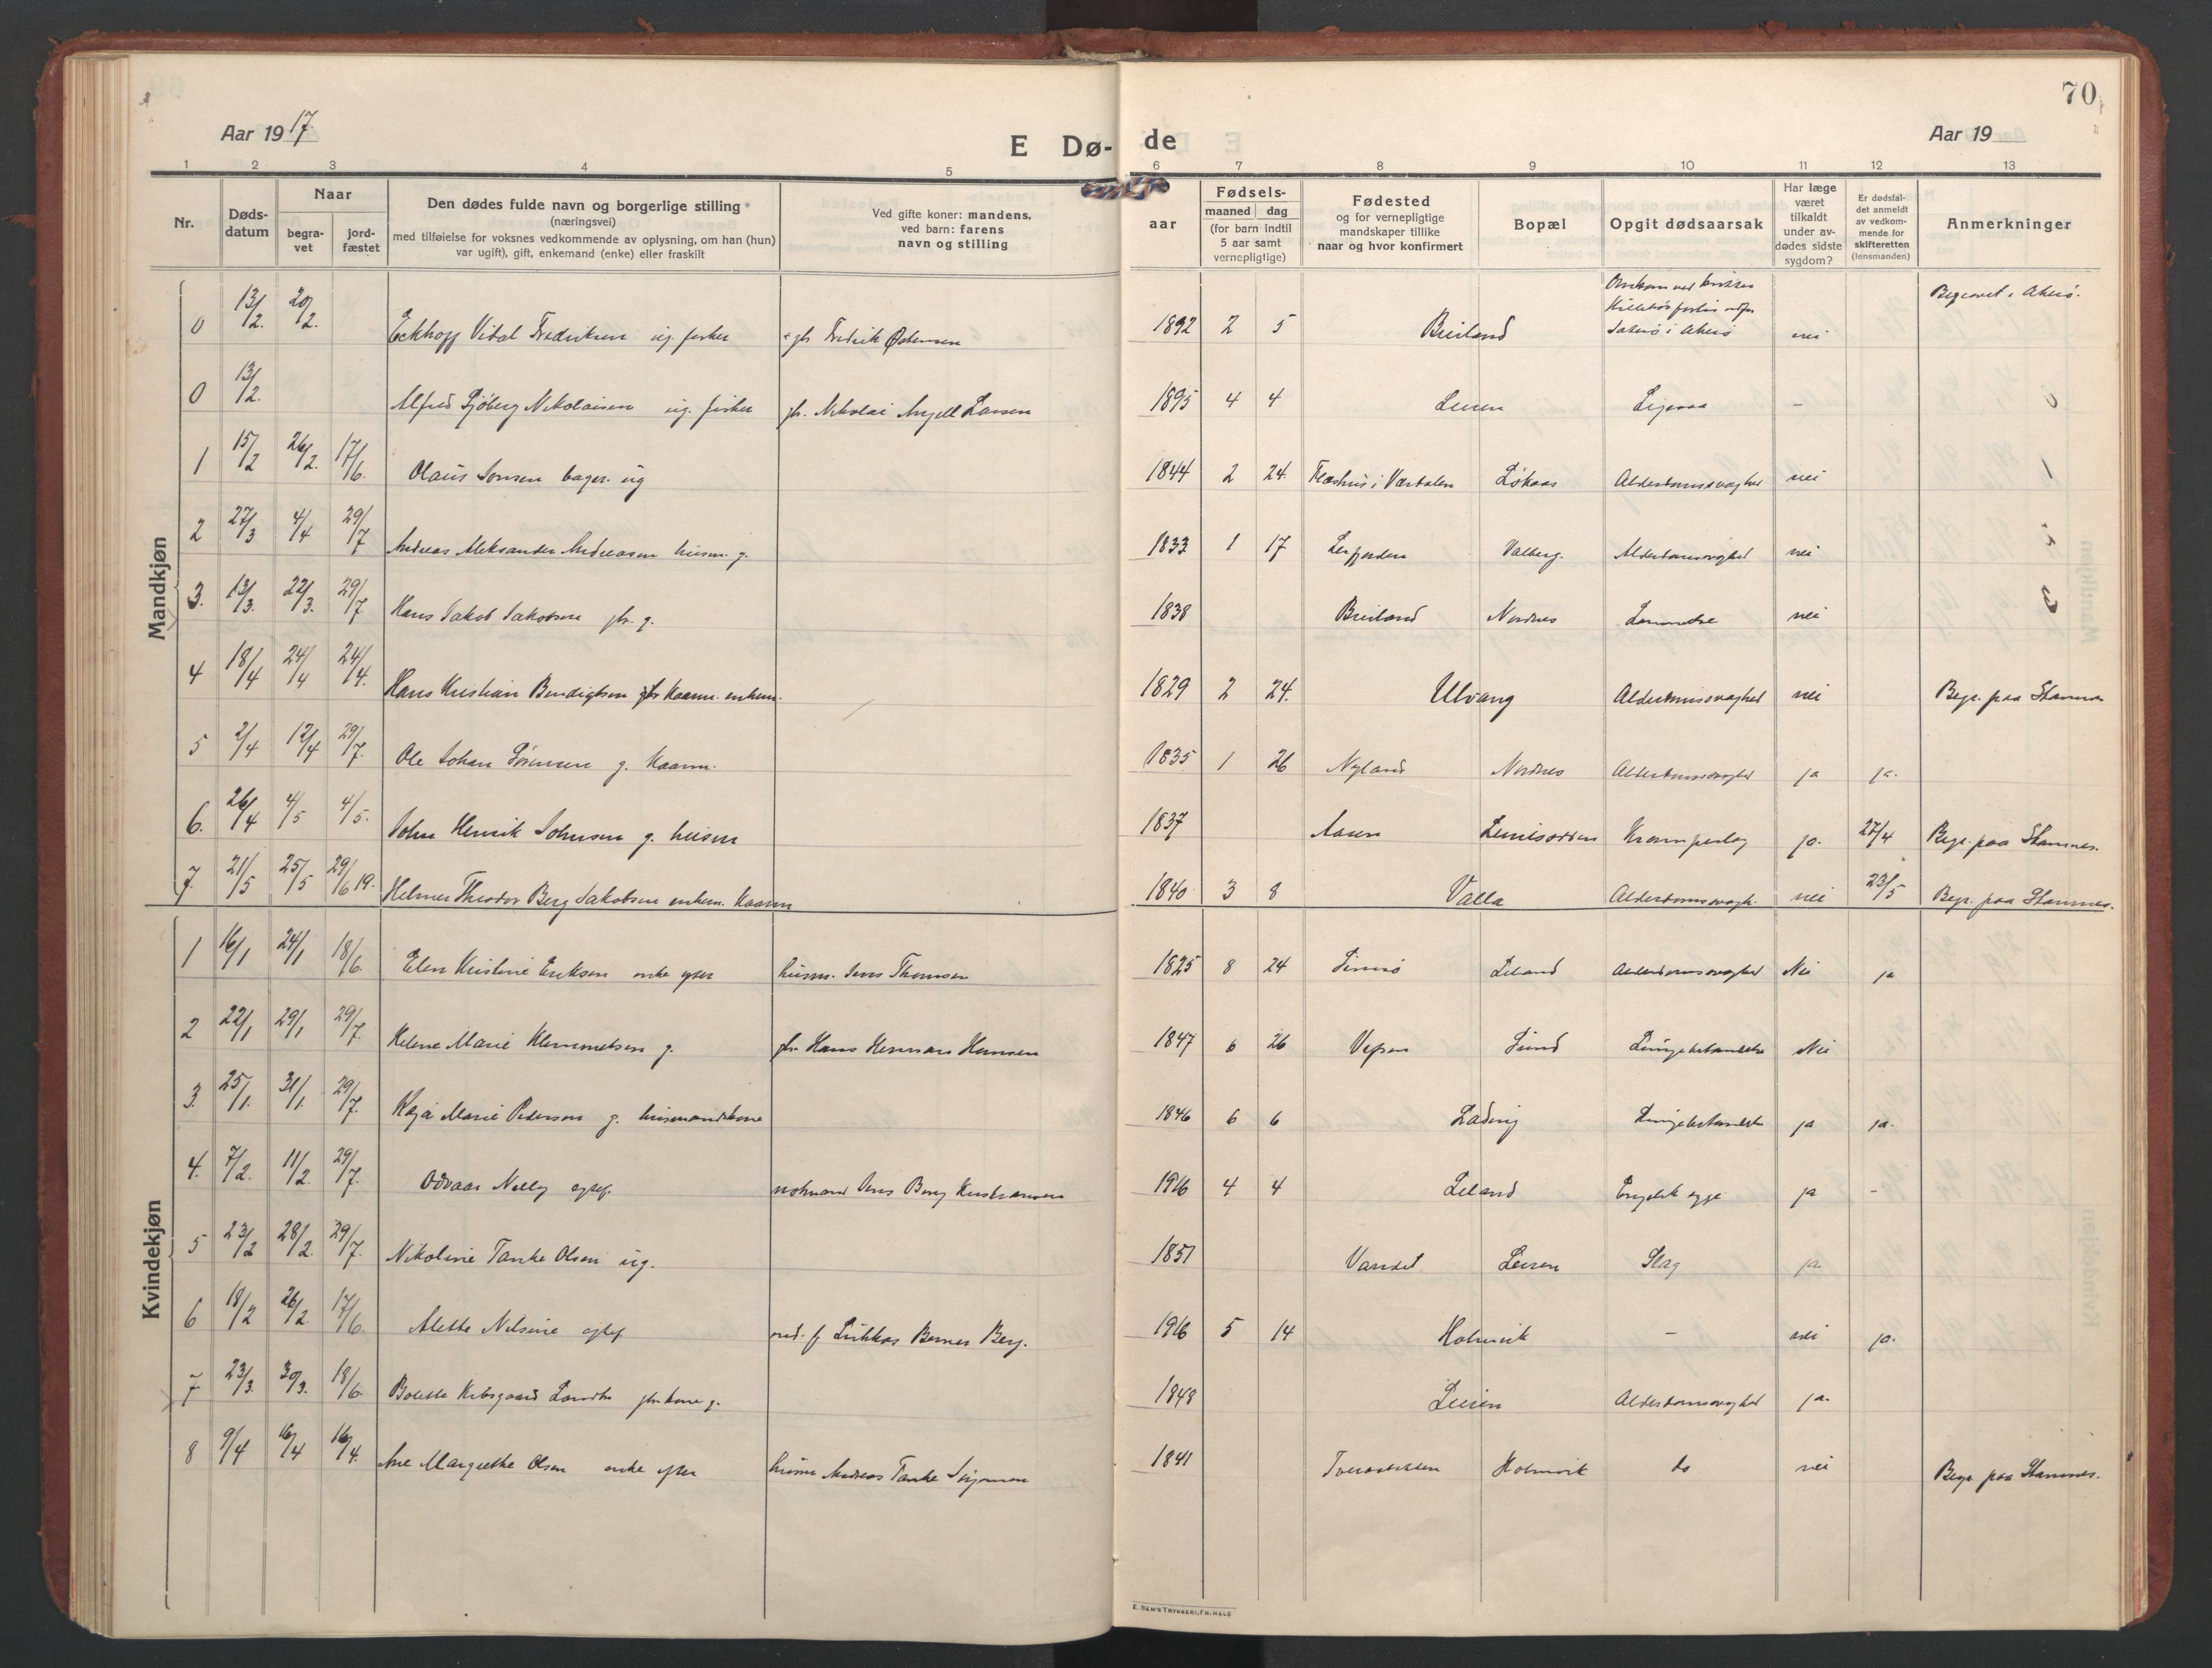 70
Aar 1917
E Dø-
de
Aar 19
1 2 3 4 5 6 7 8 9 10 11 12 13
Nr.
Døds-
datum
Naar
begra-
vet
jord-
fæstet
Den dødes fulde navn og borgerlige stilling
(næringsvei)
med tilføielse for voksnes vedkommende av oplysning, om han (hun)
var ugift), gift, enkemand (enke) eller fraskilt
Ved gifte koner: mandens,
ved barn: farens
navn og stilling
aar
Fødsels-
maaned dag
(for barn indtil
5 aar samt
vernepligtige)
Fødested
og for vernepligtige
mandskaper tillike
naar og hvor konfirmert
Bopæl
Opgit dødsaarsak
Har læge
været
tilkaldt
under av-
dødes sidste
sygdom?
Er dødsfal-
det anmeldt
av vedkom-
mende for
skifteretten
(lensmanden)
Anmerkninger
Mandkjøn
0 13/2. 20/2. Eckhoff Vidal Fredriksen ug. fisker gbr. Fredrik Østensen 1892 2 5 Breiland Omkom ved nei Begravet i Akerø.
0 13/2. Alfred Sjöberg Nikolaisen ug. fisker gbr. Nikolai Angell Larsen 1895 4 4 Leiren Ligesaa –
1 15/2 26/2. 17/6. Olaus Jonsen bager ug 1844 2 24. i Værdalen Løkaas Alderdomssvaghed nei
2 27/3 4/4 29/7 Andreas Aleksander Andreasen husm. g. 1833 1 17 Leirfjorden Valberg. Alderdomssvaghed nei
3. 13/3. 22/3. 29/7. Hans Jakob Jakobsen gbr. g. 1838 Breiland Nordnes nei
4 18/4 24/4 24/4. Hans Kristian Bendigtsen kaarm. enkem. 1829 2 24. Ulvang Alderdomssvaghed nei Begr. paa Stamnes
5 2/4 12/4 29/7. Ole Johan Sörensen g. kaarm. 1835 1 26 Nyland Nordnes Alderdomssvaghed ja ja.
6. 26/4 4/5 4/5. Johan Henrik Johnsen g. husm 1837 Aasen Krampeslag ja. 27/4 Begr. paa Stamnes.
7. 21/5 25/5 29/6 19. Helmer Theodor Berg Jakobsen enkem. kaarm 1840 3 8 Valla Alderdomssvagh. nei 23/5 Begr. paa Stamnes.
Kvindekjøn
1 16/1 24/1 18/6. Elen Kristine Eriksen enke efter husm. Jens Thomsen 1825 8 24 Leland Alderdomssvaghed Nei ja
2 22/1 29/1 29/7. Helene Marie Klemmetsen g. gbr. Hans Herman Hansen 1847 6 26 Vefsen Sund Lungebetændelse Nei
3. 25/1. 31/1. 29/7. Kaja Marie Pedersen g. husmandskone 1846 6 6 Leding Lungebetændelse ja ja.
4. 7/2. 11/2. 29/7. Odvaar Nelly egtef. Jens Berg Kristiansen 1916 4 4 Leland Engelsk syge ja –
5 23/2 28/2. 29/7. Nikoline Tanke Olsen ug. 1851 Vandet Leiren Slag ja
6 18/2 26/2. 17/6. Alette Nelsine egtef Lukkas Berner Berg. 1916 5 14 Holmvik – nei ja.
7 23/3. 30/3. 18/6. Bolette Krbsgaard gbr. kone g. 1848 Leiren Alderdomssvaghed ja.
8 9/4 16/4 16/4. Ane Margrethe Olsen enke efter husm Andreas Tanke 1841 Holmvik do nei Begr. paa Stamnes.